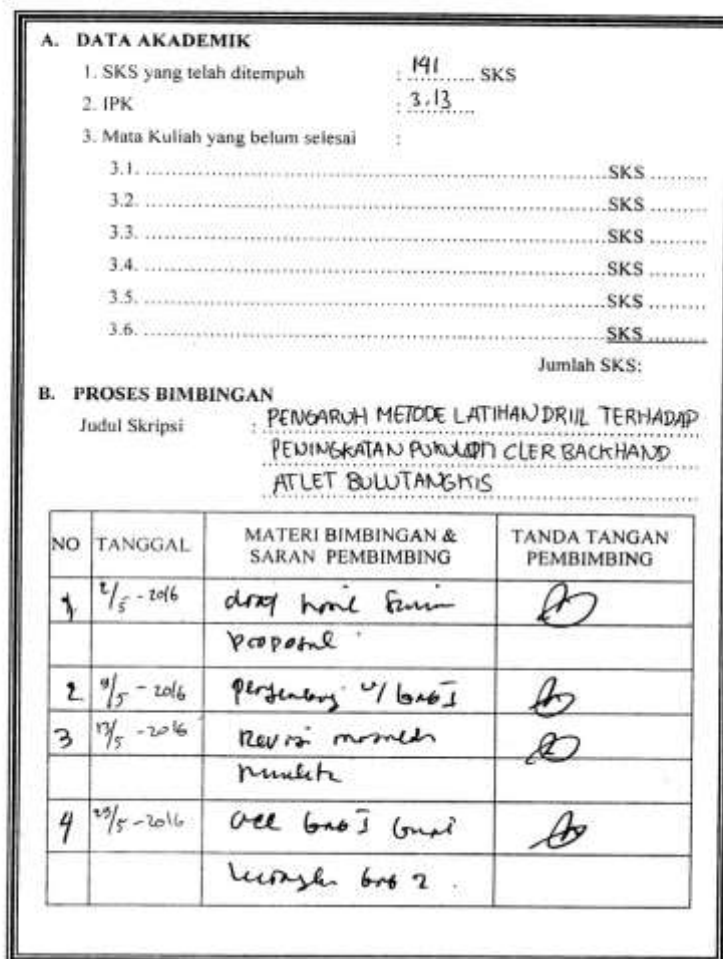 A. DATA AKADEMIK
1. SKS yang telah ditempuh : 141 SKS
2. IPK : 3.13
3. Mata Kuliah yang belum selesai :
3.1. SKS
3.2. SKS
3.3. SKS
3.4. SKS
3.5. SKS
3.6. SKS
Jumlah SKS:
B. PROSES BIMBINGAN
Judul Skripsi : PENGARUH METODE LATIHAN DRIIL TERHADAP
PENINGKATAN PUKULAN CLER BACKHAND
ATLET BULUTANGKIS
NO TANGGAL MATERI BIMBINGAN & SARAN PEMBIMBING TANDA TANGAN PEMBIMBING
1. 2/5 - 2016
proposal
2 9/5 - 2016 bab I
3 13/5 - 2016 Revisi
4 /5 - 2016 acc bab I
bab 2.